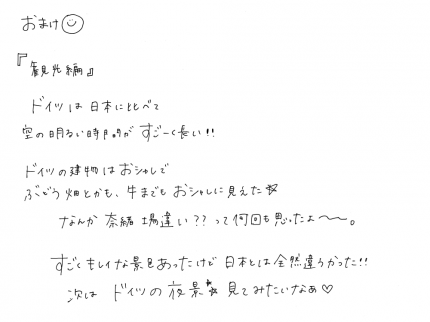 おまけ☺
『観光編』
ドイツは日本に比べて
空の明るい時間がすごーく長い!!
ドイツの建物はおシャレで
ぶどう畑とかも、牛までもおシャレに見えた☆
なんか 奈緒 場違い??って何回も思ったよ〜〜。
すごくキレイな景色あったけど 日本とは全然違うかった!!
次は ドイツの夜景☆ 見てみたいなぁ♡